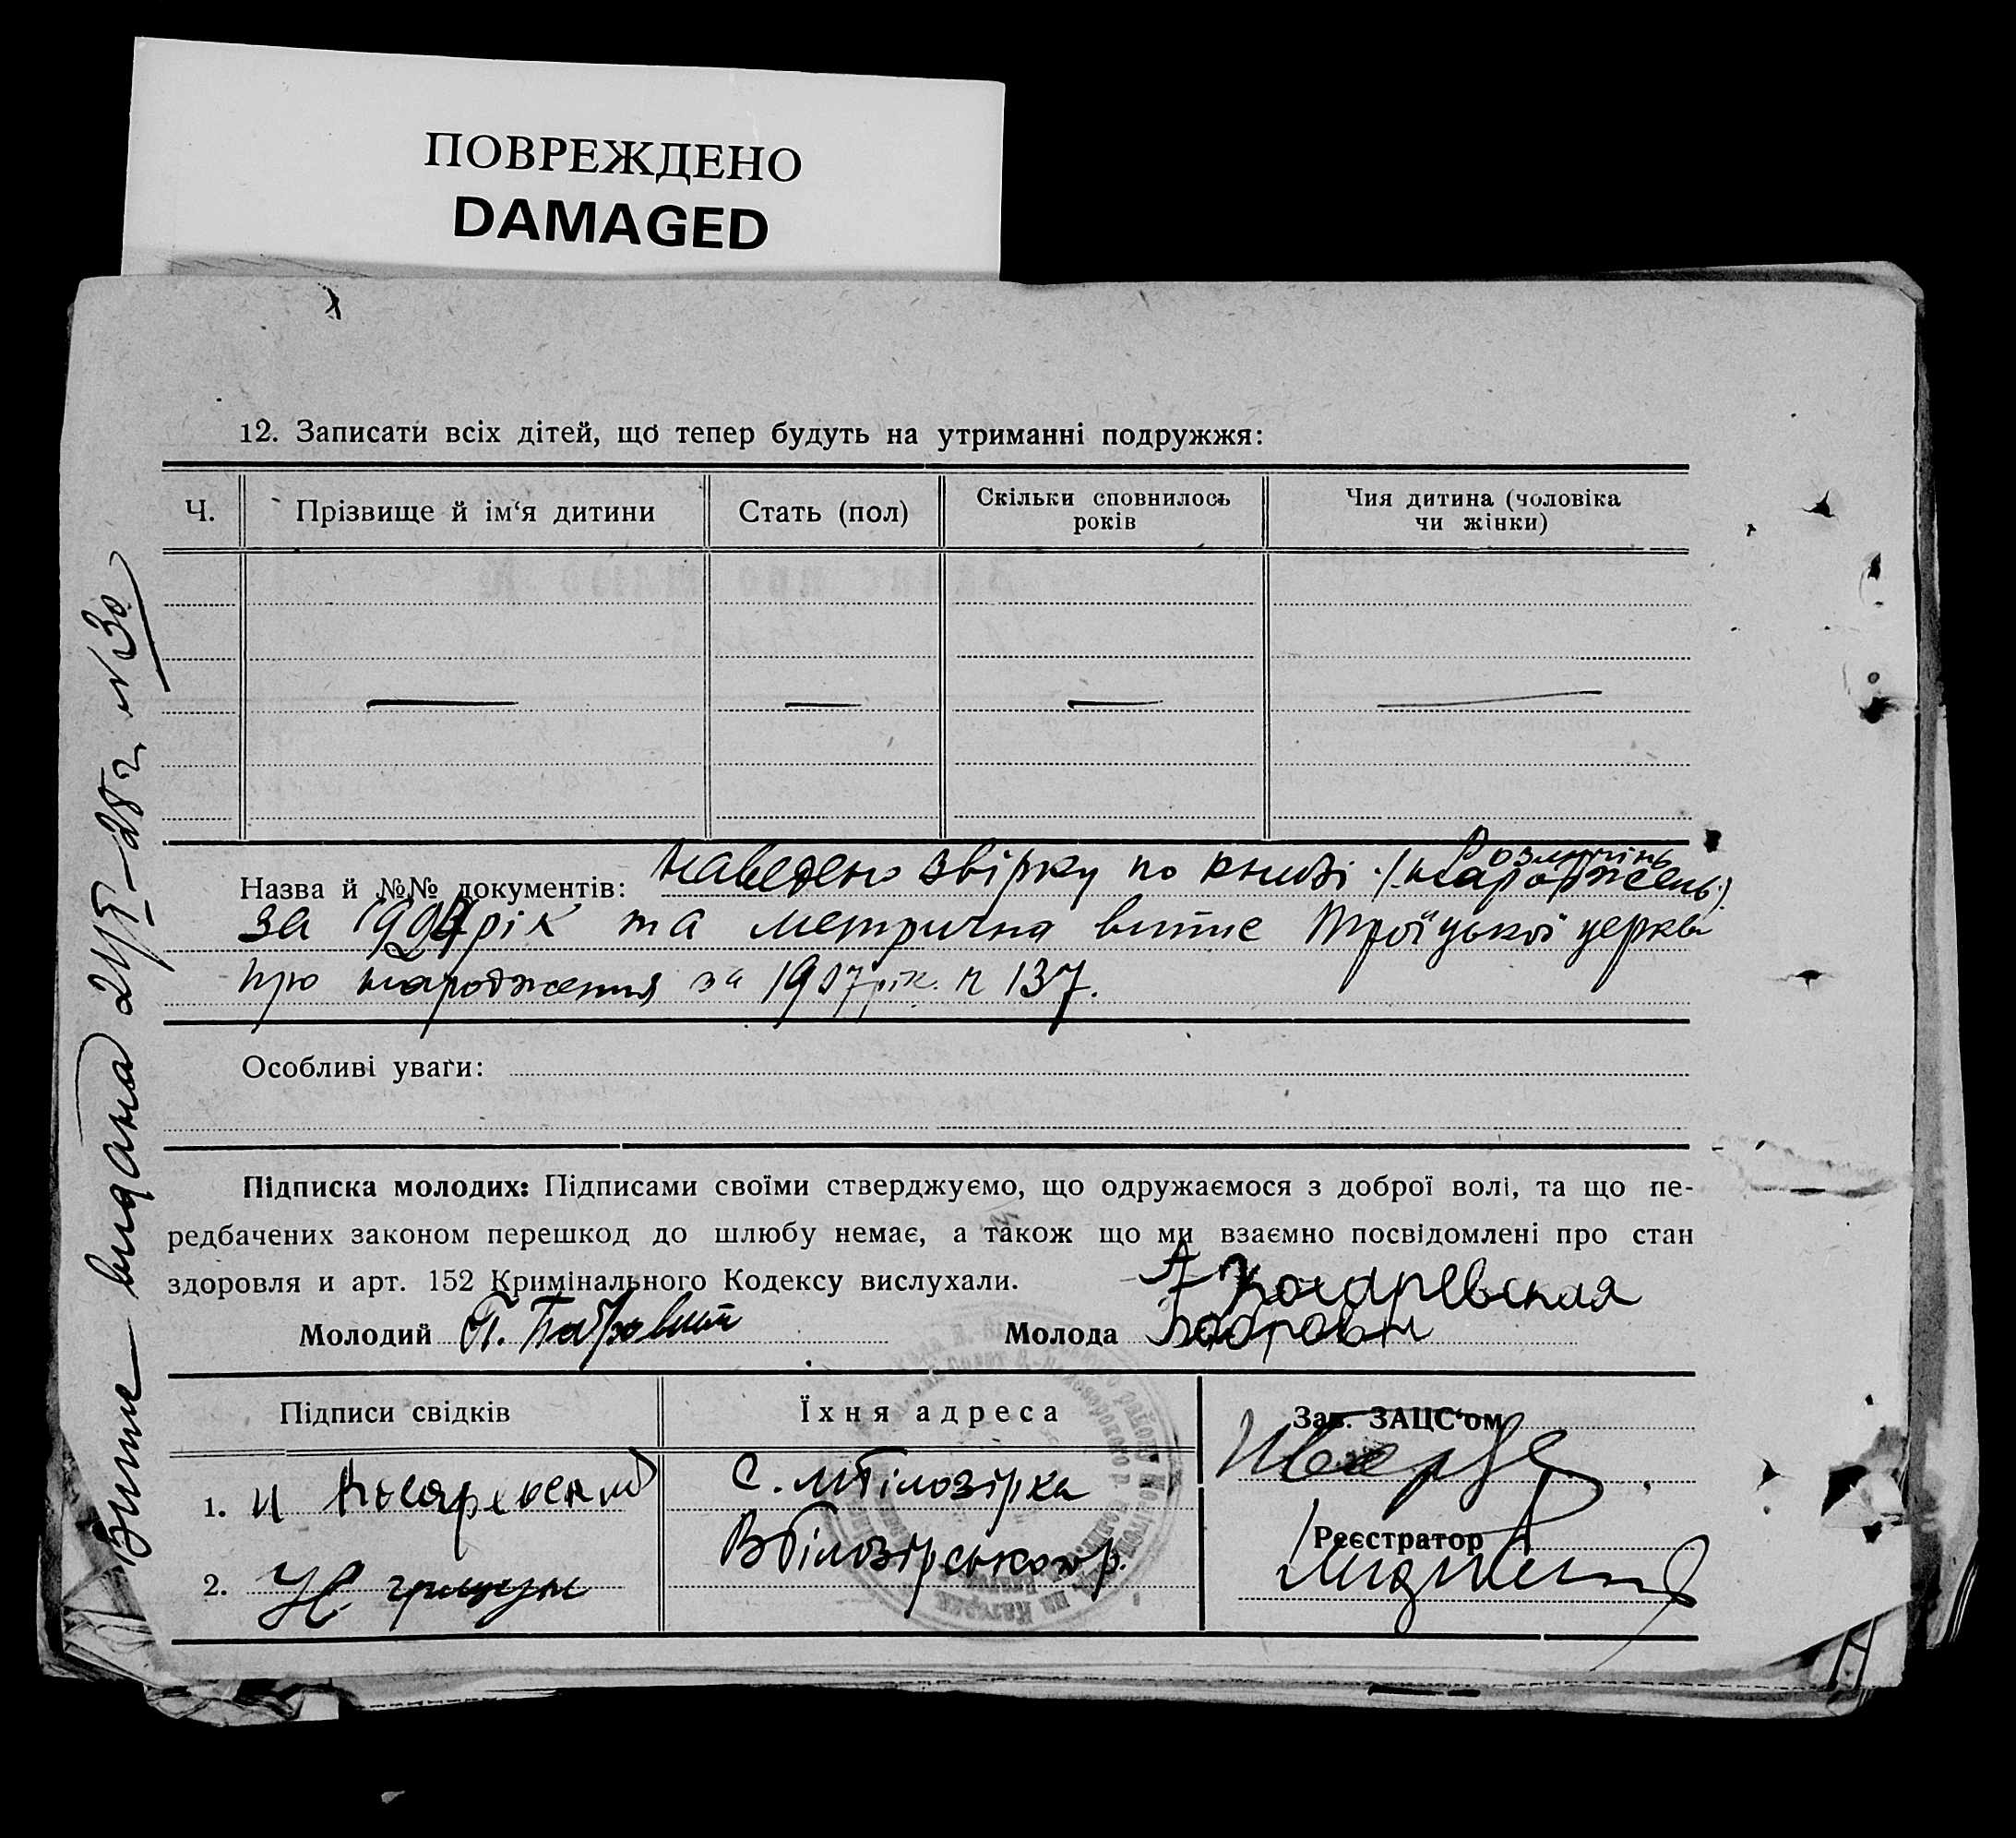 ПОВРЕЖДЕНО
DAMAGED
12. Записати всіх дітей, що тепер будуть на утриманні подружжя:
Ч.
Прізвище й ім‘я дитини
Стать (пол)
Скільки сповнилось
років
Чия дитина (чоловіка
чи жінки)
Назва й №№ документів: наведено звірку по книзі (народжень)
за рік та метрична витис Троїцької церкви
про народження за 1907 рік. n 137.
Особливі уваги:
Підписка молодих: Підписами своїми стверджуємо, що одружаємося з доброї волі, та що пе-
редбачених законом перешкод до шлюбу немає, а також що ми взаємно посвідомлені про стан
здоровля и арт. 152 Кримінального Кодексу вислухали.
Молодий П. Бобрович
Молода А Косаревская
Бобрович
Підписи свідків
Їхня адреса
Зав. ЗАЦС‘ом
1. и Косаревский
с. мБілозірка
2.
ВБілозірського р.
Реєстратор
видана № 30